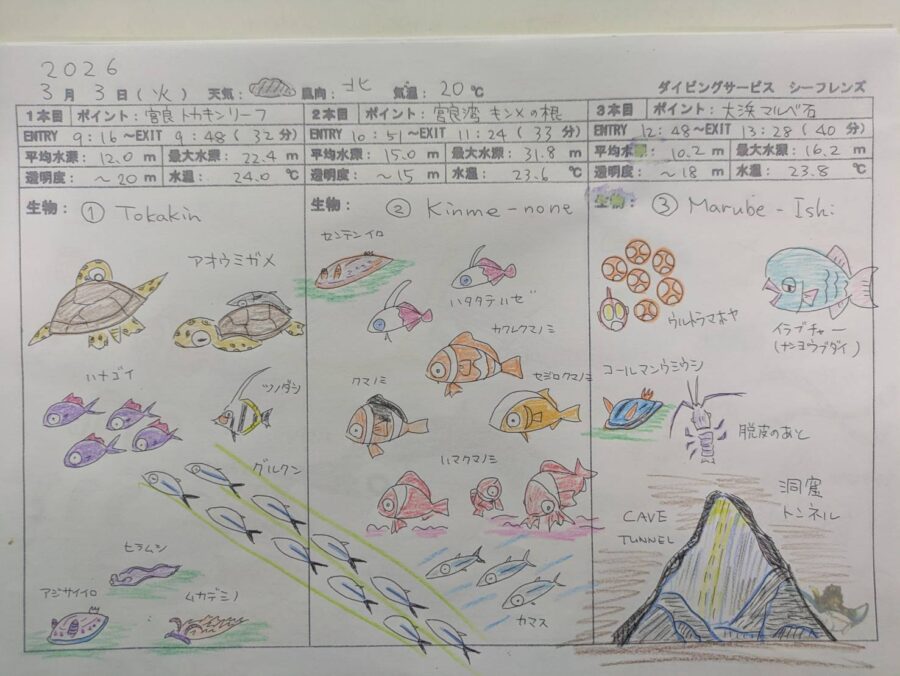 2026
3月 3日(火) 天気: 風向: 北 気温: 20℃ ダイビングサービス シーフレンズ
1本目 ポイント: 宮良 トカキンリーフ
ENTRY 9:16~EXIT 9:48(32分)
平均水深: 12.0 m 最大水深: 22.4 m
透明度: ~20 m 水温: 24.0 ℃
生物: ① Tokakin
アオウミガメ
ハナゴイ
ツノダシ
グルクン
ヒラムシ
アジサイイロ
ムカデミノ
2本目 ポイント: 宮良湾 キンメの根
ENTRY 10:51~EXIT 11:24(33分)
平均水深: 15.0 m 最大水深: 31.8 m
透明度: ~15 m 水温: 23.6 ℃
生物: ② Kinme-none
センテンイロ
ハタタテハゼ
カクレクマノミ
クマノミ
セジロクマノミ
ハマクマノミ
カマス
3本目 ポイント: 大浜 マルベ石
ENTRY 12:48~EXIT 13:28(40分)
平均水深: 10.2 m 最大水深: 16.2 m
透明度: ~18 m 水温: 23.8 ℃
生物: ③ Marube-Ishi
ウルトラマホヤ
イラブチャー
(ナンヨウブダイ)
コールマンウミウシ
脱皮のあと
洞窟
トンネル
CAVE
TUNNEL